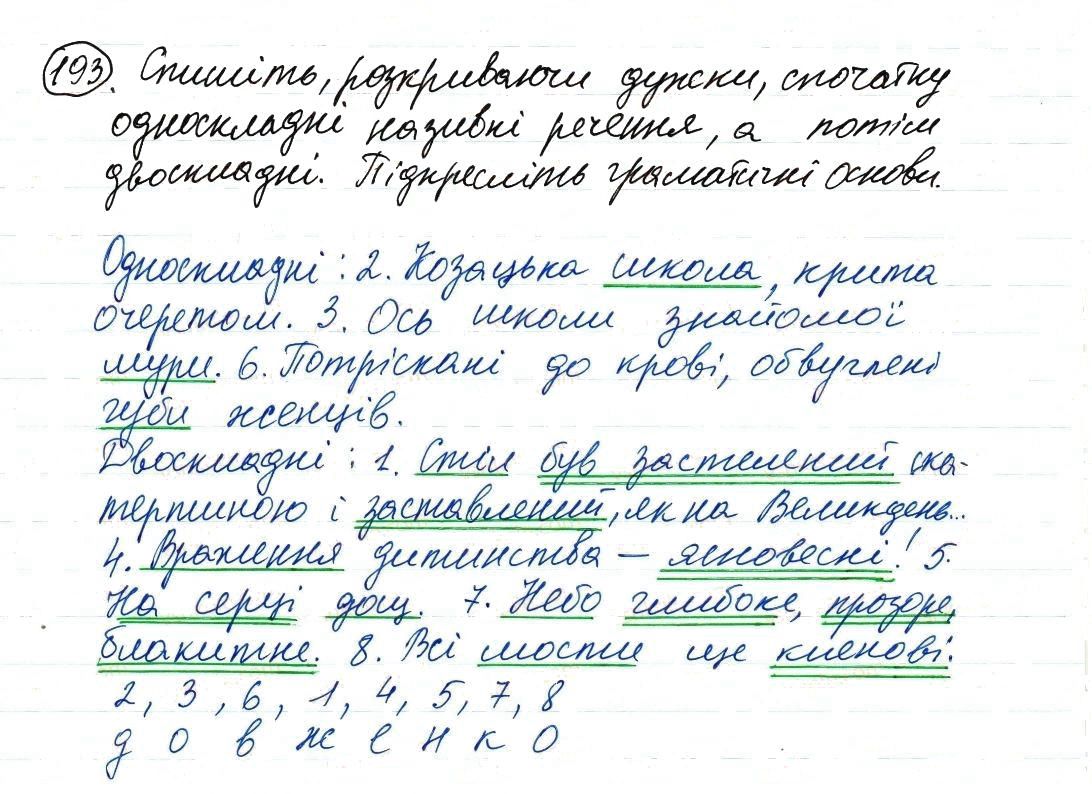 193. Спишіть, розкриваючи дужки, спочатку
односкладні називні речення, а потім
двоскладні. Підкресліть граматичні основи.
Односкладні: 2. Козацька школа, крита
очеретом. 3. Ось школи знайомої
мури. 6. Потріскані до крові, обвуглені
губи женців.
Двоскладні: 1. Стіл був застелений ска-
тертиною і заставлений, як на Великдень...
4. Враження дитинства – ясновесні! 5.
На серці дощ. 7. Небо глибоке, прозоре,
блакитне. 8. Всі мости ще кленові.
2, 3, 6, 1, 4, 5, 7, 8
д о в ж е н к о